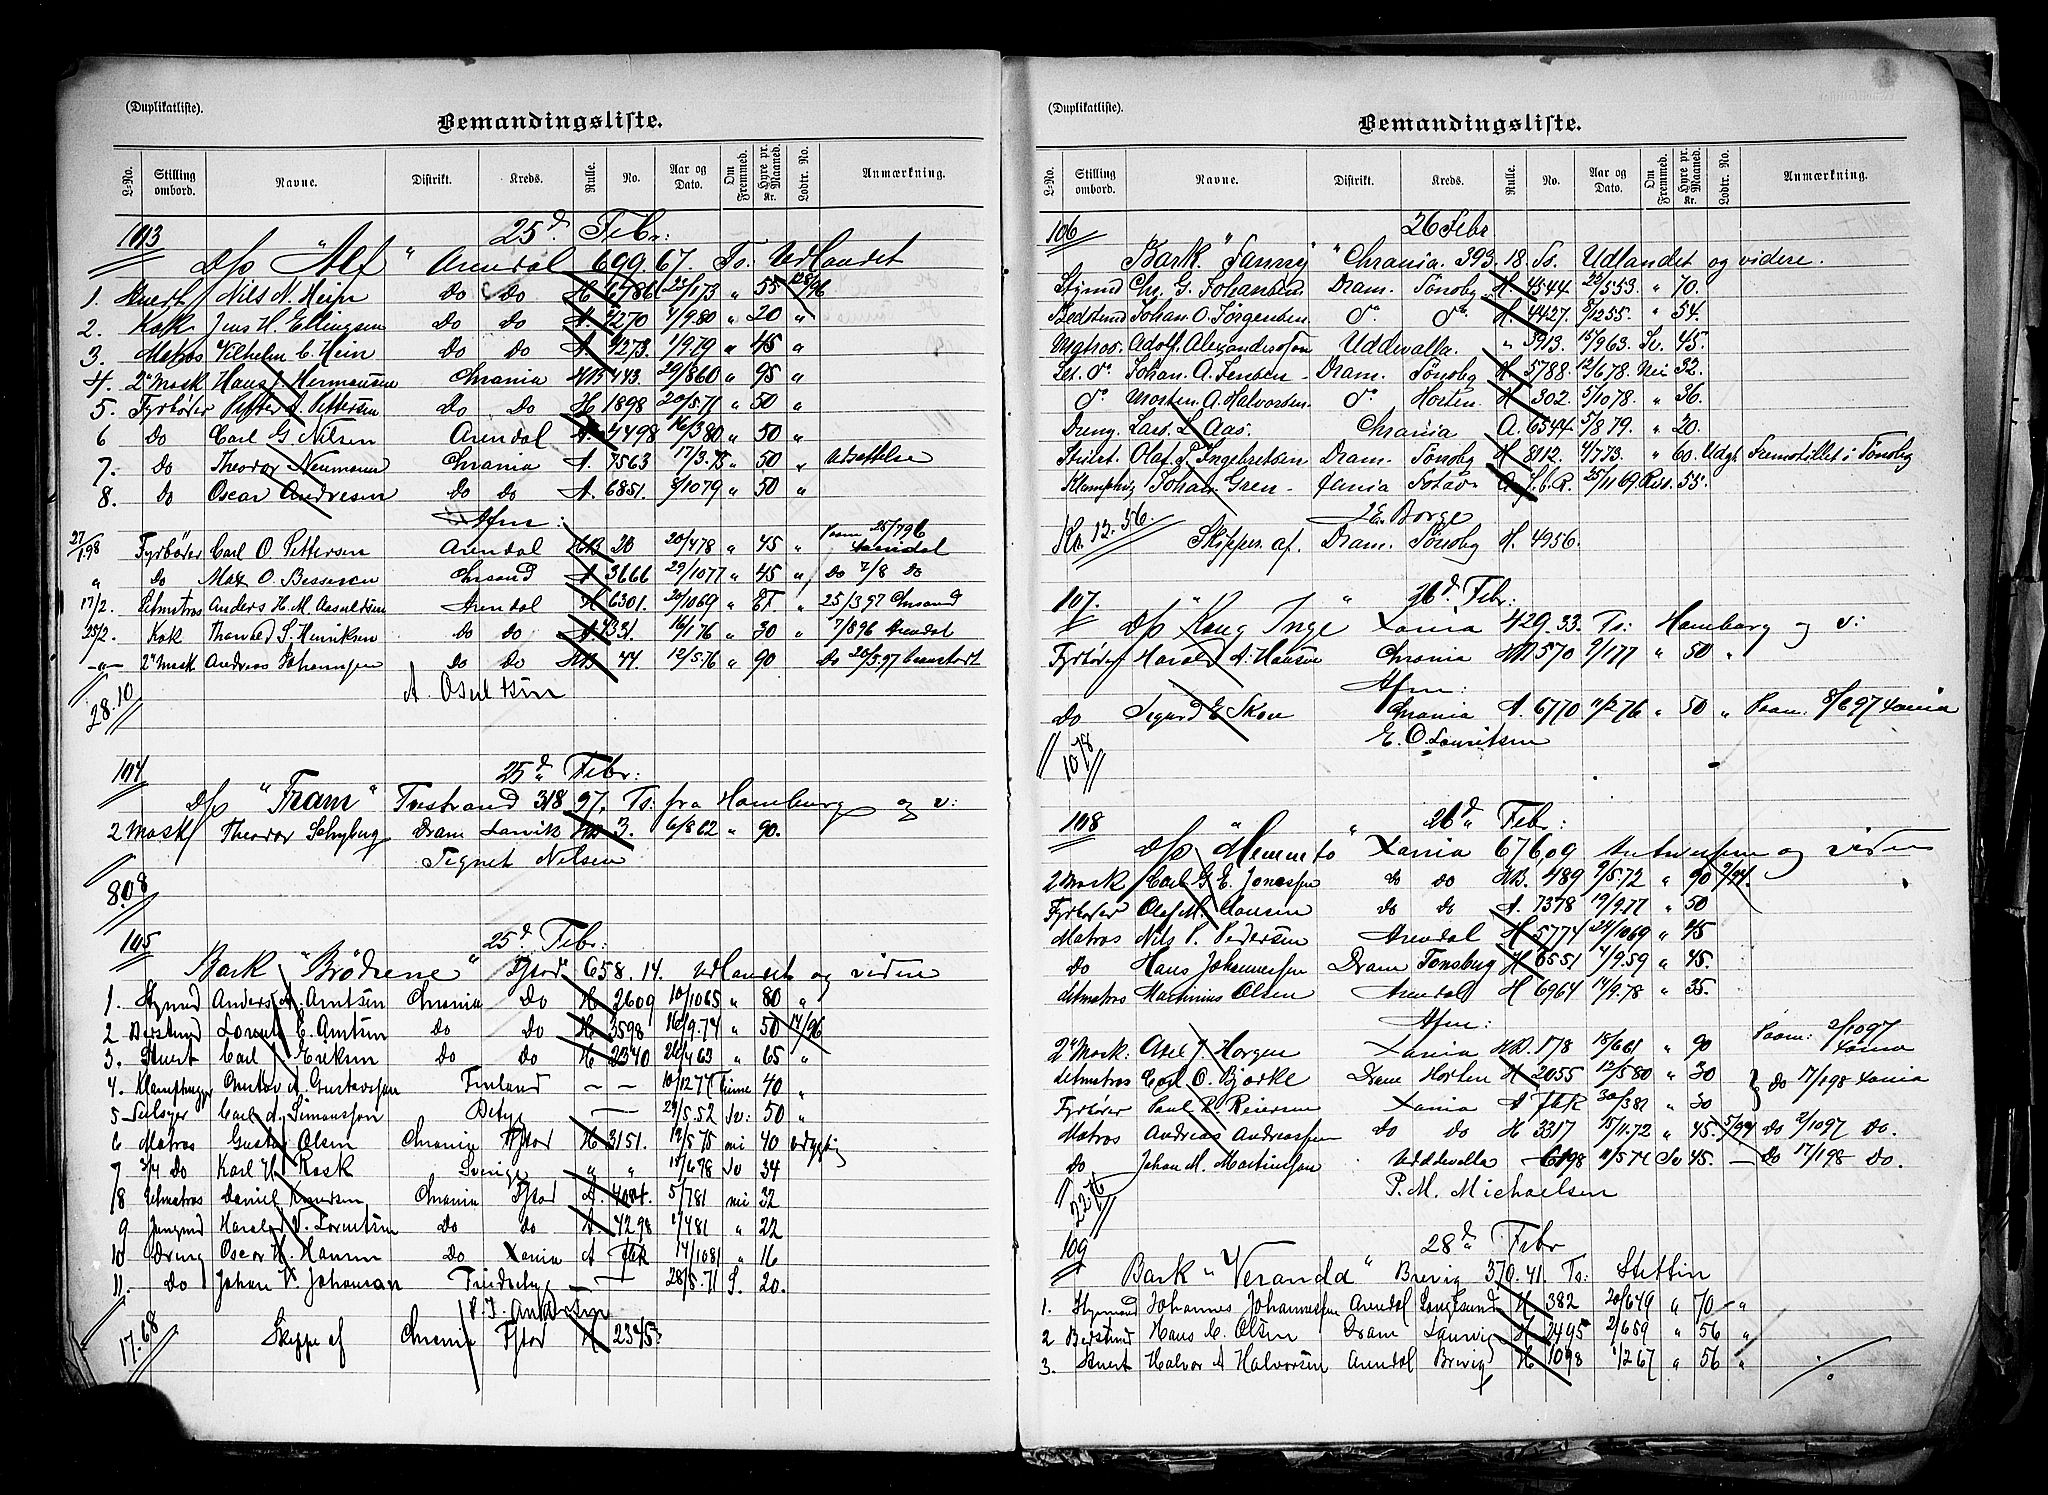 (Duplikatliste).
Bemandingsliste.
L-No. Stilling ombord. Navne. Distrikt. Kreds. Rulle. No. Aar og Dato. Om Fremmed. Hyre pr. Maaned. Kr. Lodtr. No. Anmærkning.
103 25d Febr:
D/s "Alf" Arendal 699.67. To: Udlandet
1. Stuert Nils N. Hein Do Do H 6786 /173 " 55
2. Kok Jens H. Ellingsen Do Do A. 4270 1/9.80 " 20 "
3. Matros Vilhelm C. Hein Do Do A. 4273. 1/979 " 45 "
4. 2den Mask Hans J. Hermansen Chrania HB 443. 29/860 " 95 "
5. Fyrbøder Petter A. Pettersen Do Do H 1898 20/5.71 " 50 "
6 Do Carl G Nilsen Arendal A. 4498 16/380 " 50 "
7. Do Theodor Neumann Chrania A. 7563 17/3.75 " 50 " Afsættelse
8. Do Oscar Andresen Do Do A. 6851. 3/1079 " 50 "
Afm:
27/198 Fyrbøder Carl O Pettersen Arendal HB 20 20/478 " 45 " Paam 25/796 Arendal
" Do Max O. Bessesen Chrsand A 3666 29/1077 " 45 " Do 7/8 Do
17/2. Letmatros Anders H. M. Aanuldsen Arendal H 6301. 20/1069 " EF " 25/3.97 Chrsand
25/2. Kok Thorvald S. Henriksen Do Do A 4331. 16/176 " 30 " 7/896 Arendal
— " — 2den Mask Andreas Johannsen Do Do HB 44. 12/5.76 " 90 Do 20/5.97
A. Osuldsen
28.10
104 25de Febr:
D/s "Fram" Tvestrand 318 97. To: fra Hamburg og v:
2 Mask Theodor Schyberg Dram Larvik HB 3. 6/862 " 90.
Tegnet Nilsen
8.08
105 25d Febr:
Bark "Brødrene" Fstad 658.14. Udlandet og videre
1. Styrmd Anders A. Arntsen Chrania Do H 2609 10/1065 " 80 "
2 Bedstmd Lorentz C. Arntsen Do Do H 3598 16/9.74 " 50 14/96
3. Stuert Carl Eriksen Do Do H 2340 26/463 " 65 "
4. Klamphugger Gustav A. Gustavsson Finland — — 10/1274 Finne 40 "
5 Seilsyer Carl A. Simonsson — 29/5.52 Sv: 50 "
6 Matros Gustav Olsen Chrania Fstad H 3151. 19/5.75 nei 40 udygtig
7 3/4 Do Karl H. Rask Sverige " " 18/678 Sv 34
8 Letmatros Daniel Knudsen Chrania Fstad A. 4084. 5/781 nei 32
9 Jungmd Harald V. Lorentsen Do Do A 4298 1/481 " 22
10 Dreng Oscar H. Hansen Do Xania A fbR 14/1081 " 16
11. Do Johan V. Johansson — 28/5.71 S. 20.
P. J. Andersen
17.68 Skipper af Chrania Fstad H 2345.
(Duplikatliste).
Bemandingsliste.
L-No. Stilling ombord. Navne. Distrikt. Kreds. Rulle. No. Aar og Dato. Om Fremmed. Hyre pr. Maaned. Kr. Lodtr. No. Anmærkning.
106 26 Febr
Bark. "Fanny" Chrania. 393.18. To. Udlandet og videre.
Styrmd Chr. G. Johansen. Dram. Tönsbg H. 4544. 22/553. " 70.
Bedstmd Johan. O. Jørgensen do. do. H. 4427. 5/1255. " 54.
Matros. Adolf. Alexandersson Uddevalla. " 3913. 15/963. Sv. 45.
Let. do. Johan. A. Jensen – Dram. Tönsbg H 5788. 12/678. Nei 32.
do. Morten. A. Halvorsen. do. Horten. H 302. 5/1078. " 36.
Dreng. Lars. L. Aas. Chrania A. 6544. 5/8 79. " 20.
Stuert. Olaf. L. Ingebretsen Dram. Tönsbg H. 8112. 4/773. " 60. Udgt. Fremstillet i Tönsbg
Klamphug Johan. Gren – fania A. f.b.R. 25/11 69. Rus. 55.
J. E. Borge
Kr. 13.56. Skipper. af. Dram. Tönsbg H. 4956.
107. 26d. Febr:
D/s "Kong Inge" Xania 429.33. To: Hamburg og v:
Fyrbøder Harald A. Hansen Chrania HB 570 9/177 " 50 "
Afm:
Do Sigurd E. Skou Chrania A. 6770 11/276 " 50 " Paam. 8/697 Xania
E. O. Lauritsen
10.78
108 26de Febr:
D/s "Memento" Xania 676.09 Antwerpen og videre
2 Mask Carl G. E. Jonassen do do HB. 489 9/5.72 " 90 9/94.
Fyrbøder Olaf M. Hansen Do Do A. 7378 19/9.77 " 50
Matros Nils P. Pedersen Arendal H 5774 24/1069 " 45
Do Hans Johannessen Dram Tønsberg H 6551 4/9.59 " 45.
Letmatros Martinius Olsen Arendal H 6964 14/9.78 " 35.
Afm:
2den Mask: Axel J. Horgen Xania HB. 178 18/661 " 90 Paam: 2/1097 Xania
Letmatros Carl O. Bjørke Dram Horten H 2055 12/580 " 30 } Do 17/198 Xania
Fyrbøder Paul R. Reiersen Xania A fbR 30/382 " 30
Matros Andreas Andreassen Do Do H 3317 15/11.72 " 45. 5/94 Do 2/1097 Do.
Do Johan M. Martinsson Uddevalla — 6198 11/5.74 Sv 45. — Do 17/198 Do.
P. M. Michaelsen
22.76
109 28de Febr
Bark "Verandd" Brevig 370.41. To: Stettin
1. Styrmand Johannes Johannessen Arendal Langesund H 382 20/649 " 70 – "
2 Bedstmd Hans C. Olsen Dram Laurvig H 2495 2/659 " 56 "
3. Stuert Halvor A Halvorsen Arendal Brevig H 1098 1/267 " 56 "